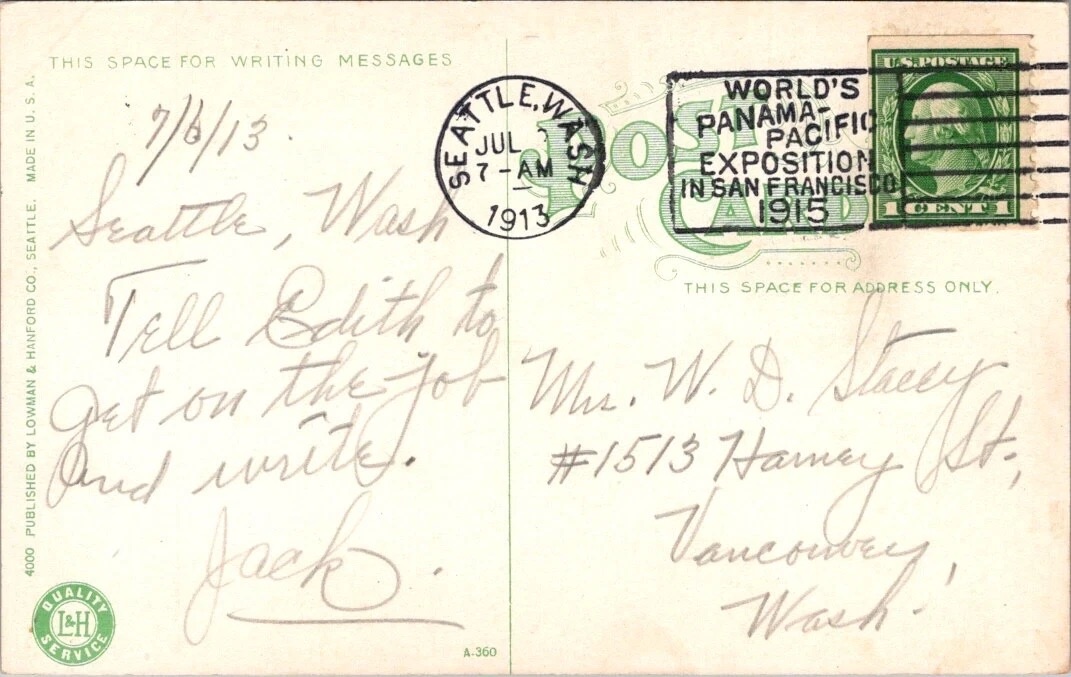 THIS SPACE FOR WRITING MESSAGES
7/6/13.
Seattle, Wash
Tell Edith to
get on the job
and write.
Jack.
4000 PUBLISHED BY LOWMAN & HANFORD CO., SEATTLE. MADE IN U.S.A.
QUALITY
L&H
SERVICE
A-360
SEATTLE, WASH
JUL
7-AM
1913
POST
CARD
WORLD'S
PANAMA-
PACIFIC
EXPOSITION
IN SAN FRANCISCO
1915
U.S. POSTAGE
1 CENT 1
THIS SPACE FOR ADDRESS ONLY.
Mr. W. D. Stacey
#1513 Harney St.,
Vancouver,
Wash.